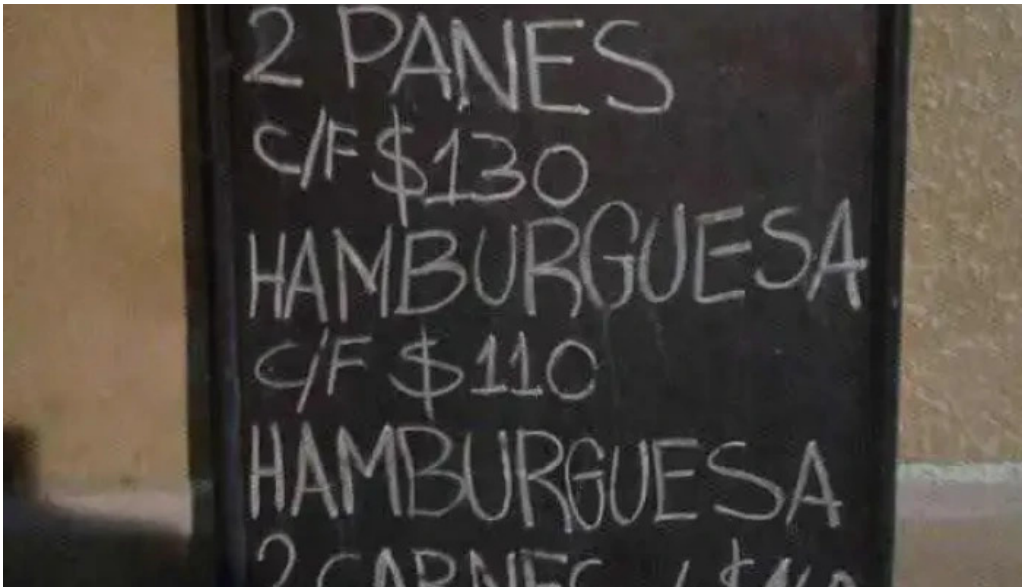 2 PANES
C/F $130
HAMBURGUESA
C/F $110
HAMBURGUESA
2 CARNES